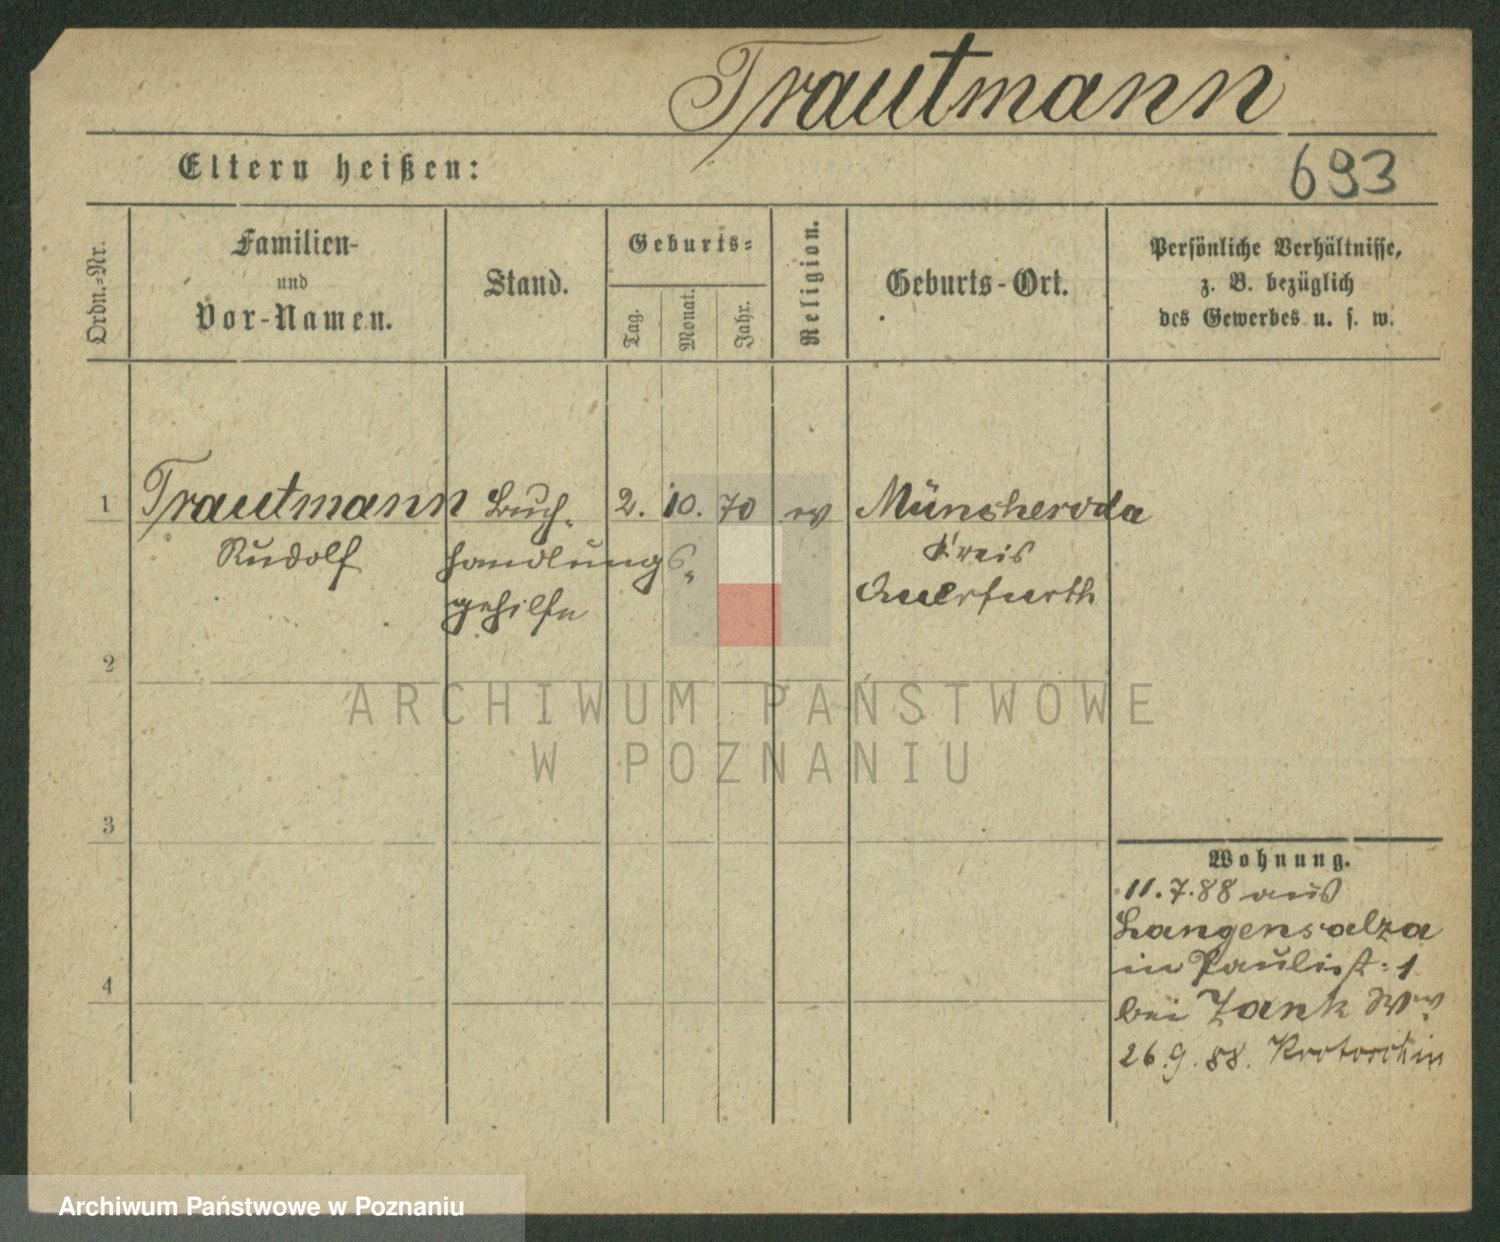 Trautmann
Eltern heißen:
693
Ordn.-Nr.
Familien-
und
Vor-Namen.
Stand.
Geburts-
Tag.
Monat.
Jahr.
Religion.
Geburts-Ort.
Persönliche Verhältnisse,
z. B. bezüglich
des Gewerbes u. s. w.
1 Trautmann Buch- 2. 10. 70 ev Müncheroda
Rudolf handlungs- Kreis
gehilfe Querfurth
2
ARCHIWUM PAŃSTWOWE
W POZNANIU
3
Wohnung.
11.7.88 aus
Langensalza
in Paulist. 1
4
bei Zank
26.9.88. Krotoschin
Archiwum Państwowe w Poznaniu